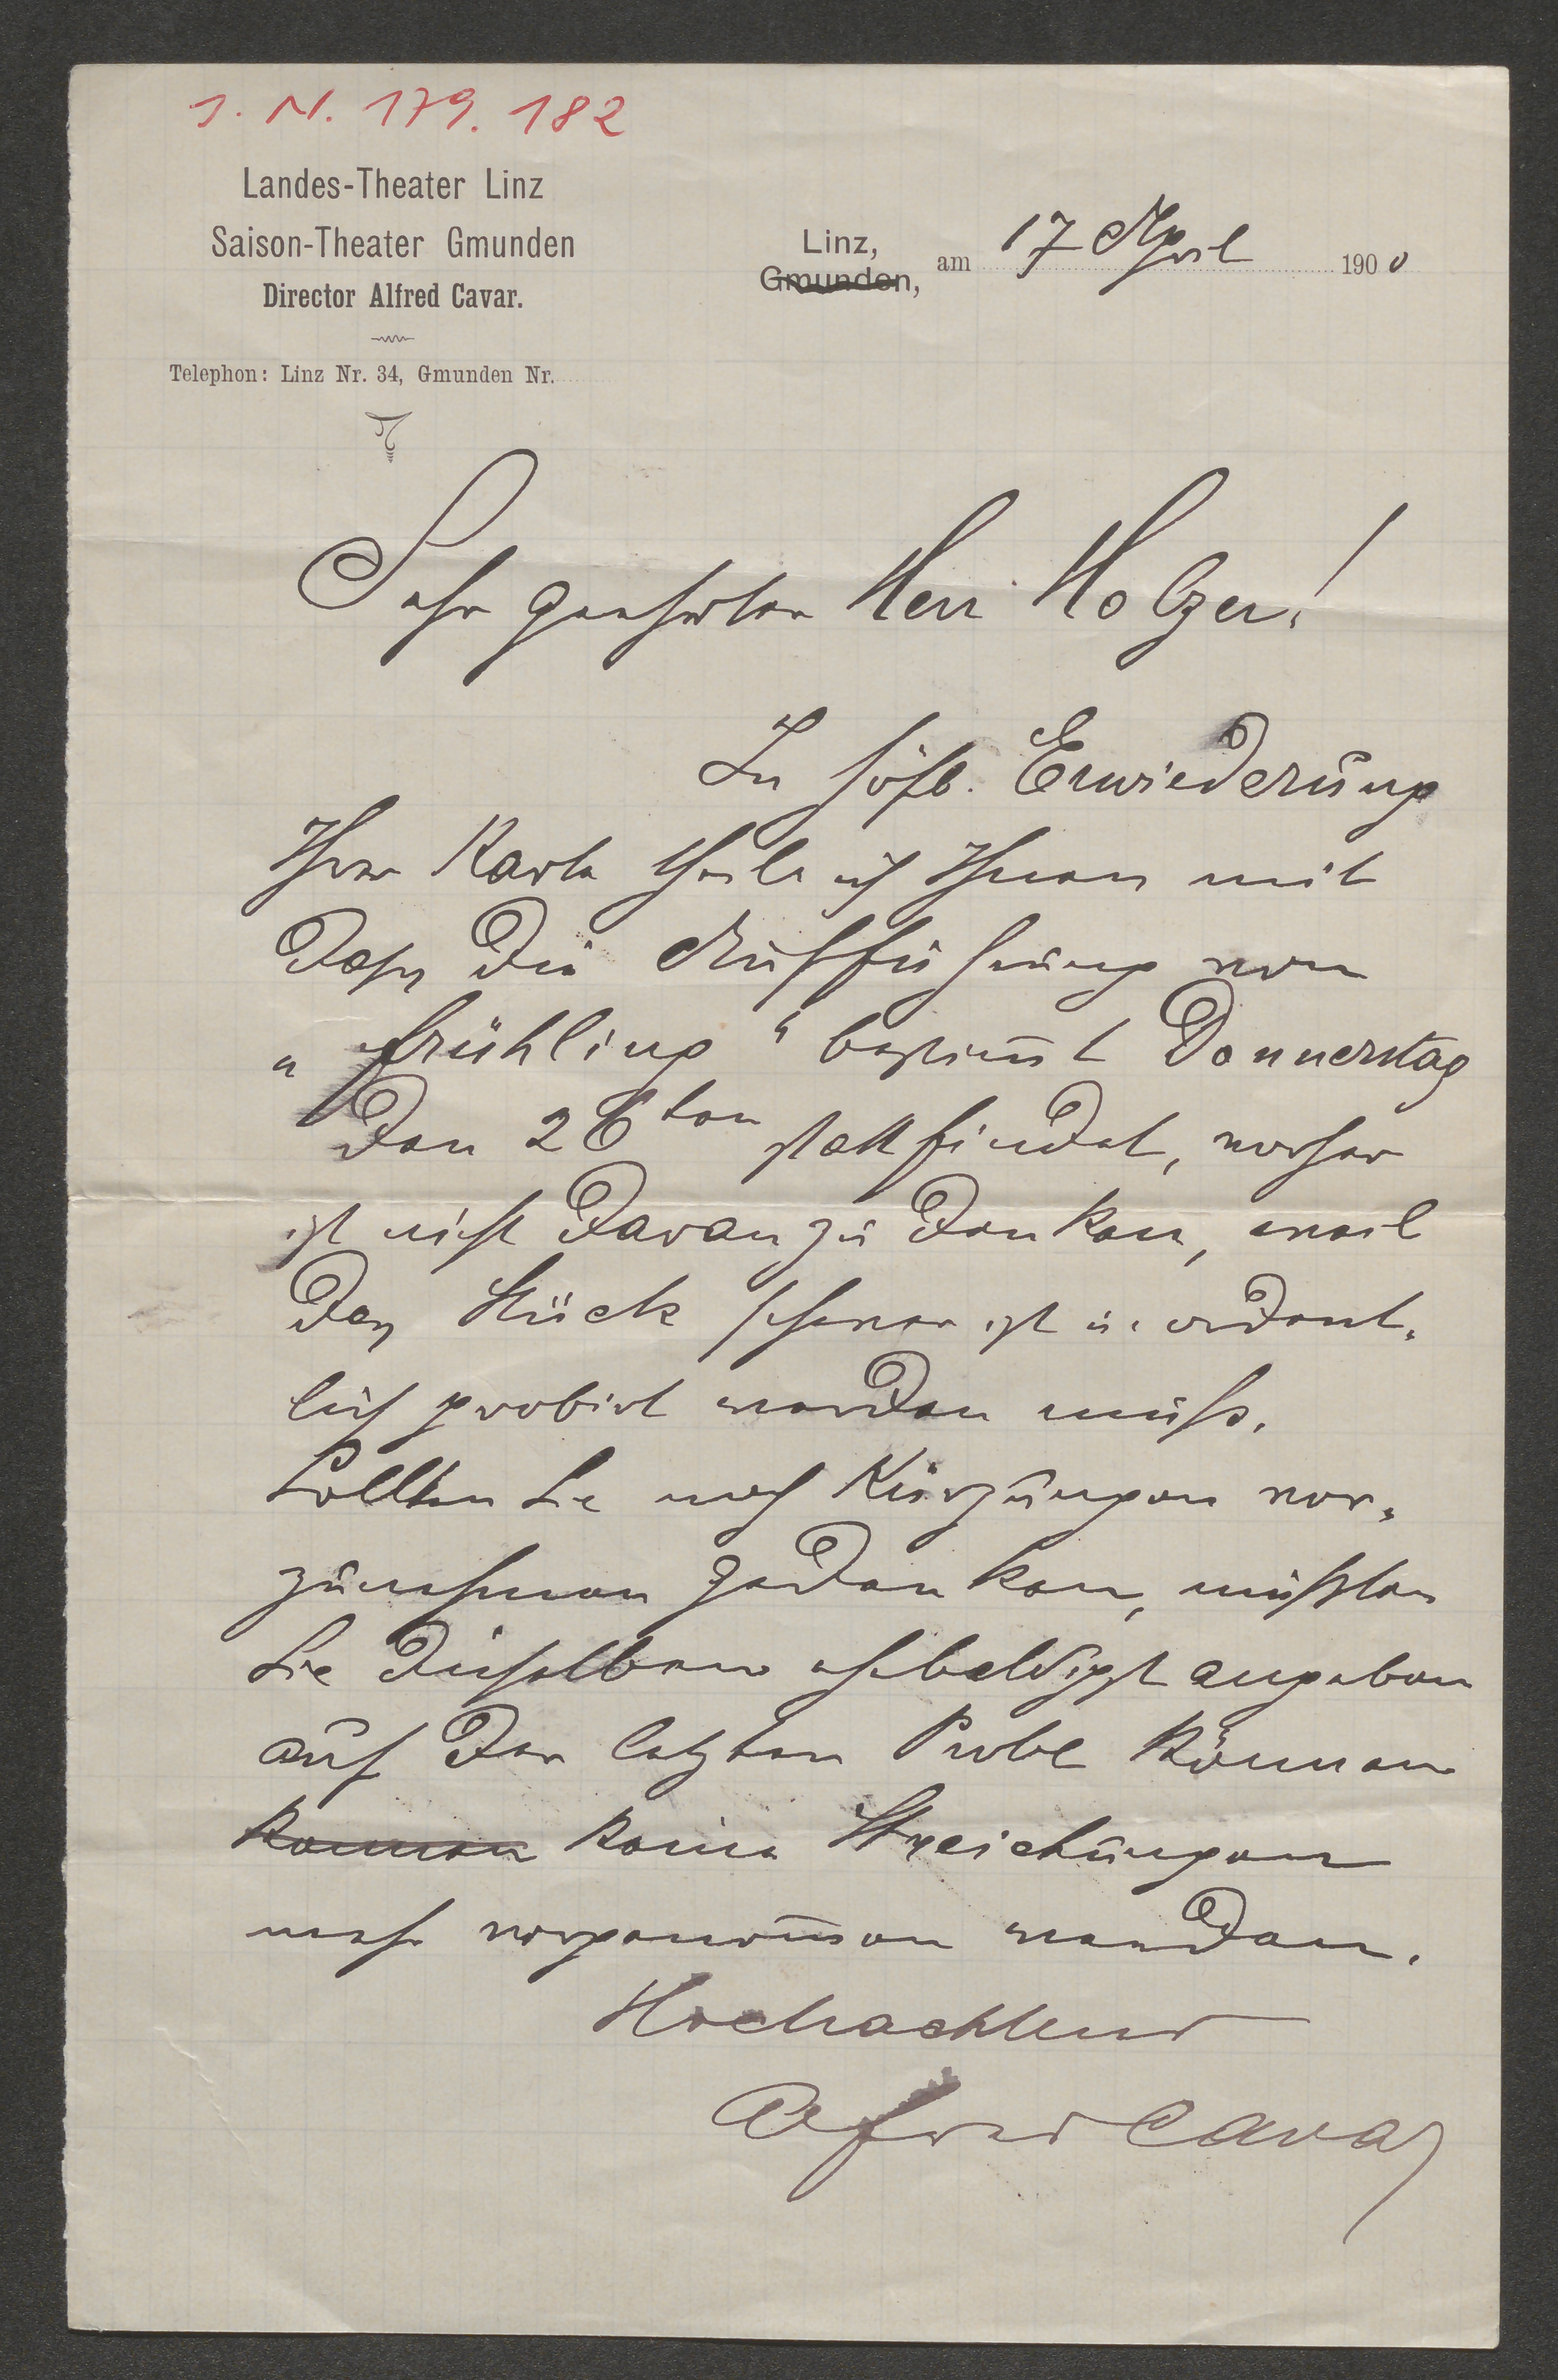 J. N. 179.182
Landes-Theater Linz
Saison-Theater Gmunden
Director Alfred Cavar.
Telephon: Linz Nr. 34, Gmunden Nr.
Linz,
Gmunden,
am 17 April 1900
Sehr geehrter Herr Holzer!
In höfl. Erwiederung
Ihrer Karte theile ich Ihnen mit
dass die Aufführung von
„Frühling" bestim̅t Donnerstag
den 26ten stattfindet, vorher
ist nicht daran zu denken, weil
das Stück schwer ist u. ordent-
lich probirt werden muss.
Sollten Sie noch Kürzungen vor-
zunehmen gedenken, müssten
Sie dieselben ehebaldigst angeben
auf der letzten Probe können
kennen keine Streichungen
mehr vorgenom̅en werden.
Hochachtend
Alfred Cavar